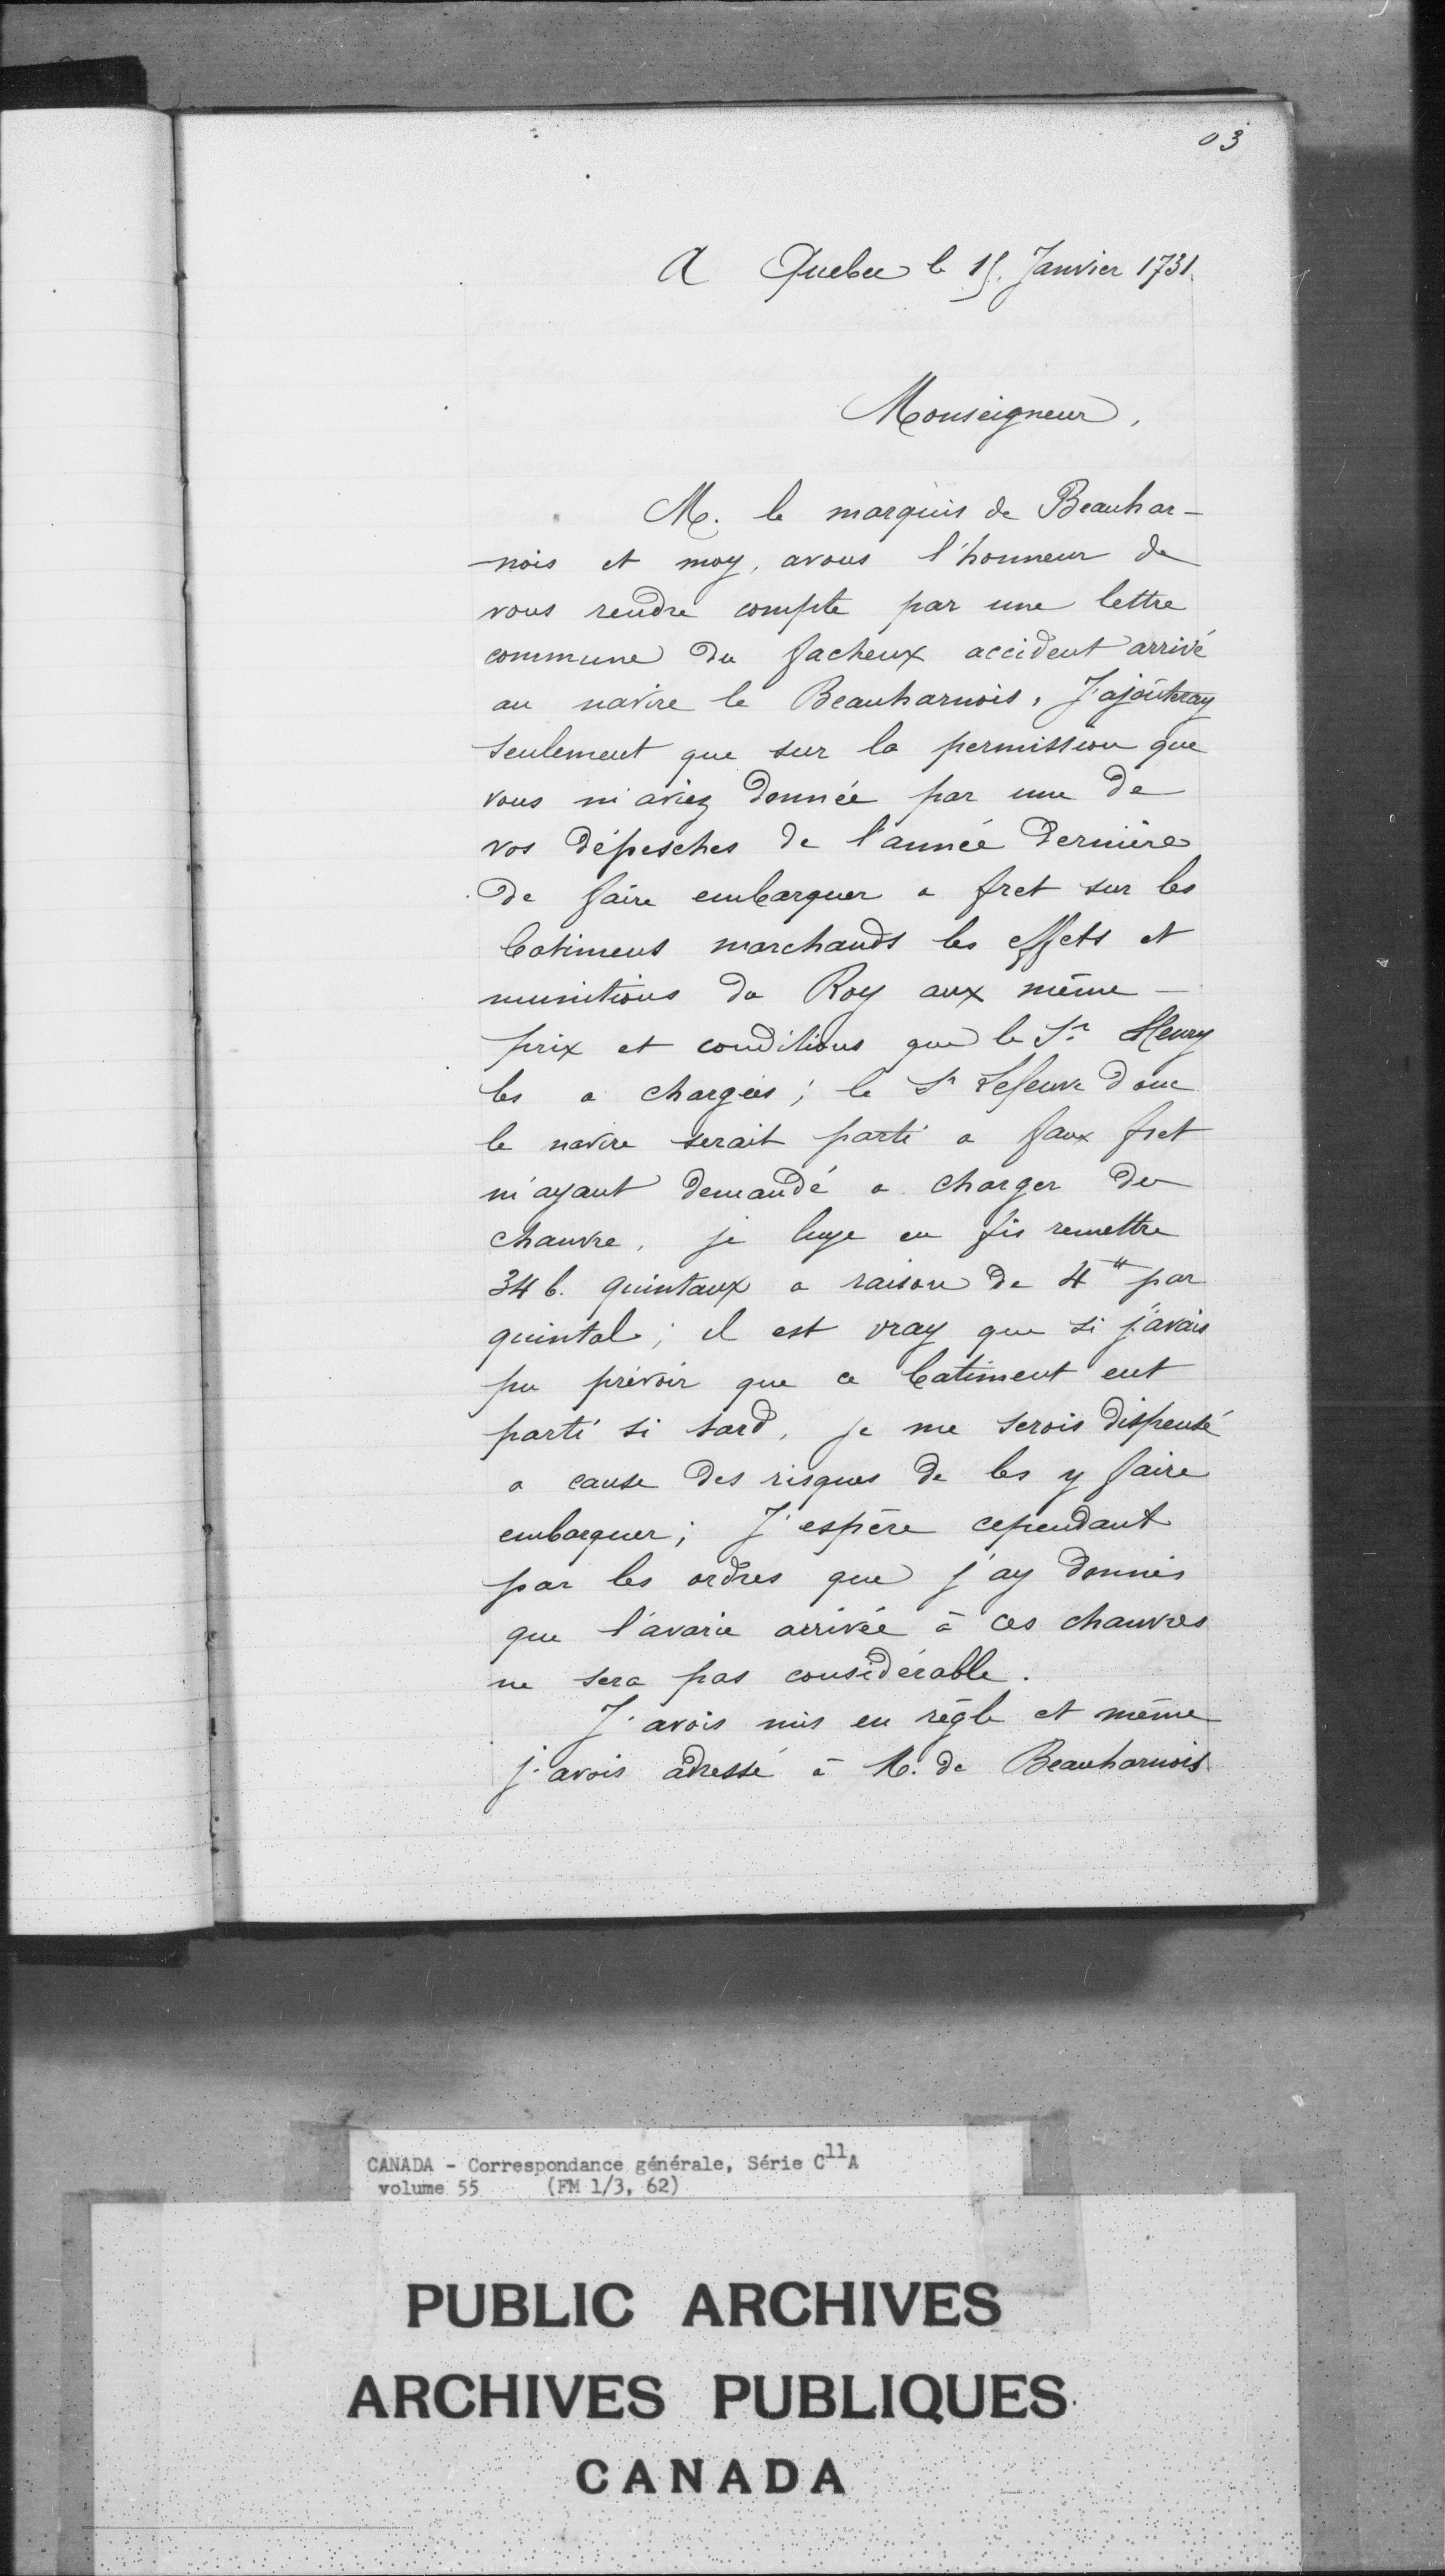 03
A Quebec le 15. Janvier 1731.
Monseigneur,
M. le marquis de Beauhar-
nois et moy, avons l'honneur de
vous rendre compte par une lettre
commune du facheux accident arrivé
au navire le Beauharnois, J'ajoûteray
seulement que sur la permission que
vous m'aviez donnée par une de
vos dépesches de l'année dernière
de faire embarquer a fret sur les
batimens marchands les effets et
munitions du Roy aux même
prix et conditions que le Sr. Fleury
les a chargées; le Sr Lefeuvre donc
le navire serait parti a faux fret
m'ayant demandé a charger du
chanvre, je luye en fis remettre
346. quintaux a raison de 4# par
quintal; il est vray que si j'avais
pu prévoir que ce batiment eut
parti si tard, je me serois dispensé
a cause des risques de les y faire
embarquer; J'espère cependant
par les ordres que j'ay donnés
que l'avarie arrivée à ces chanvres
ne sera pas considérable.
J'avois mis en règle et même
j'avois adressé à M. de Beauharnois
CANADA - Correspondance générale, Série C11A
volume 55 (FM 1/3, 62)
PUBLIC ARCHIVES
ARCHIVES PUBLIQUES
CANADA